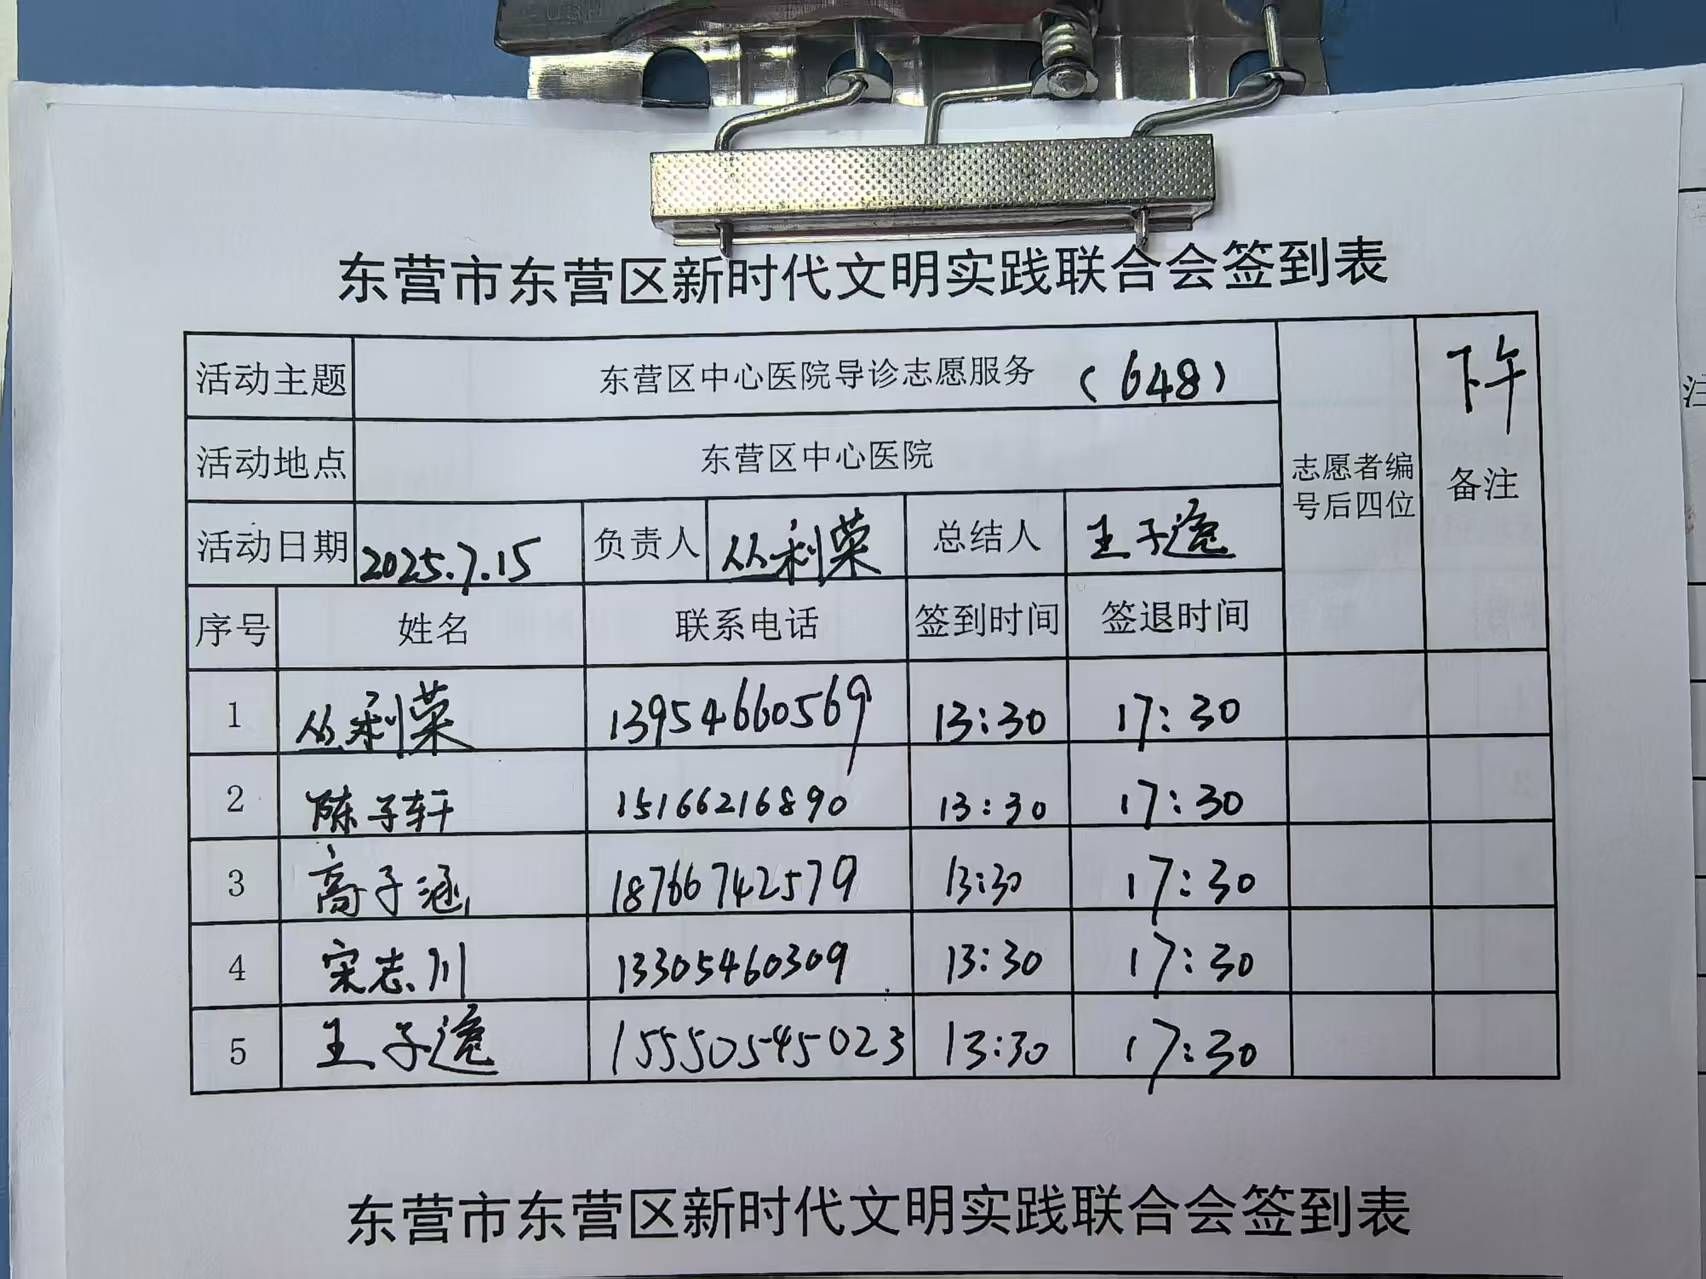 东营市东营区新时代文明实践联合会签到表
活动主题 东营区中心医院导诊志愿服务 (648) 下午
活动地点 东营区中心医院 志愿者编号后四位 备注
活动日期 2025.7.15 负责人 丛利荣 总结人 王子
序号 姓名 联系电话 签到时间 签退时间
1 丛利荣 13954660569 13:30 17:30
2 陈子轩 15166216890 13:30 17:30
3 高子涵 18766742579 13:30 17:30
4 宋志川 13305460309 13:30 17:30
5 王子 15550545023 13:30 17:30
东营市东营区新时代文明实践联合会签到表